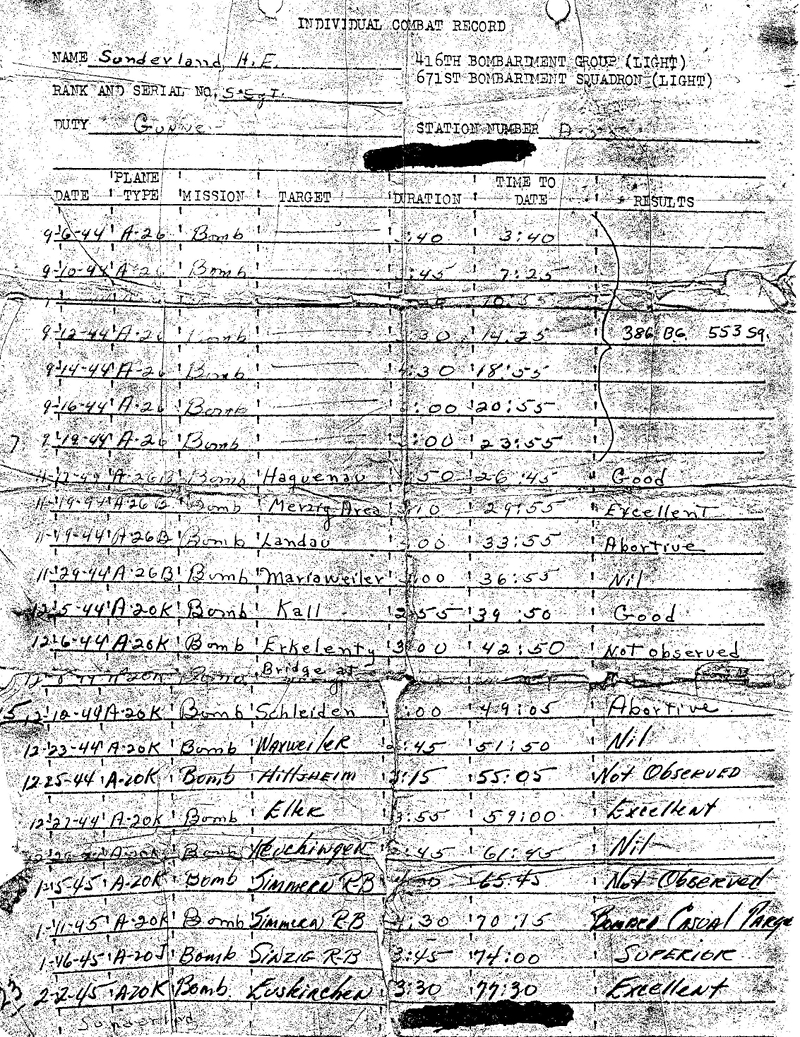 INDIVIDUAL COMBAT RECORD
NAME Sunderland, H.E. 416TH BOMBARDMENT GROUP (LIGHT)
671ST BOMBARDMENT SQUADRON (LIGHT)
RANK AND SERIAL NO. S-Sgt.
DUTY Gunner STATION NUMBER
DATE PLANE TYPE MISSION TARGET DURATION TIME TO DATE RESULTS
9-6-44 A-26 Bomb :40 3:40
9-10-44 A-26 Bomb :45 7:25
10:55
9-12-44 A-26 Bomb :30 14:25 386 BG. 553 Sq.
9-14-44 A-26 Bomb :30 18:55
9-16-44 A-26 Bomb :00 20:55
A-26 Bomb :00 23:55
A-26B Bomb Haguenau :50 26:45 Good
A-26B Bomb Merzig Area :10 29:55 Excellent
11-19-44 A-26B Bomb Landau :00 33:55 Abortive
11-29-44 A-26B Bomb Mariaweiler :00 36:55 Nil
12-5-44 A-20K Bomb Kall 2:55 39:50 Good
12-6-44 A-20K Bomb Erkelenty 3:00 42:50 Not observed
A-20K Bomb Bridge at
15 12-12-44 A-20K Bomb Schleiden :00 49:05 Abortive
12-23-44 A-20K Bomb Waxweiler :45 51:50 Nil
12-25-44 A-20K Bomb Hillsheim 3:15 55:05 Not Observed
12-27-44 A-20K Bomb Eller 3:55 59:00 Excellent
A-20K Bomb :45 61:45 Nil
1-5-45 A-20K Bomb Simmern R-B :00 65:45 Not Observed
1-11-45 A-20K Bomb Simmern R-B 4:30 70:15 Bombed Casual Target
1-16-45 A-20J Bomb Sinzig R-B 3:45 74:00 Superior
23 2-2-45 A20K Bomb Euskirchen 3:30 77:30 Excellent